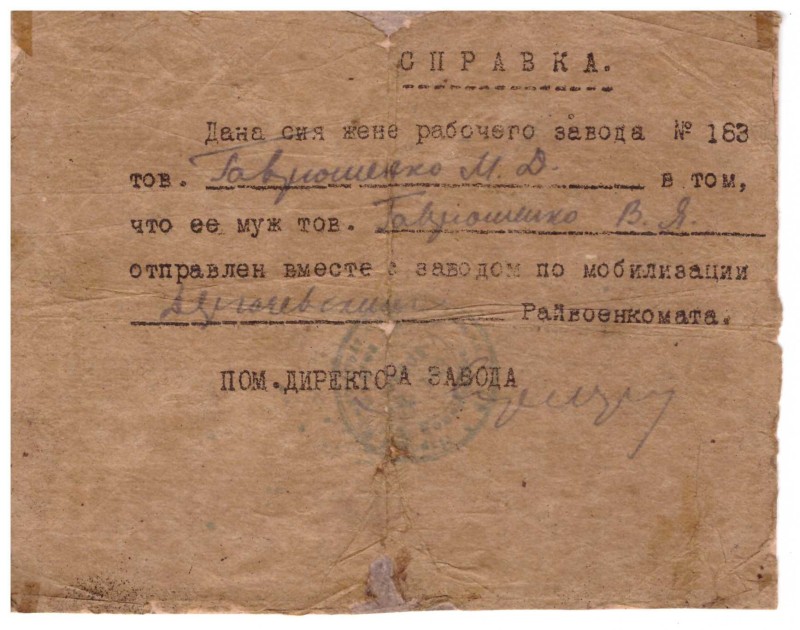 СПРАВКА.
Дана сия жене рабочего завода № 183
тов. Гаврюшенко М. Д. в том,
что ее муж тов. Гаврюшенко В. Я.
отправлен вместе с заводом по мобилизации
Дергачевский Райвоенкомата.
ПОМ.ДИРЕКТОРА ЗАВОДА